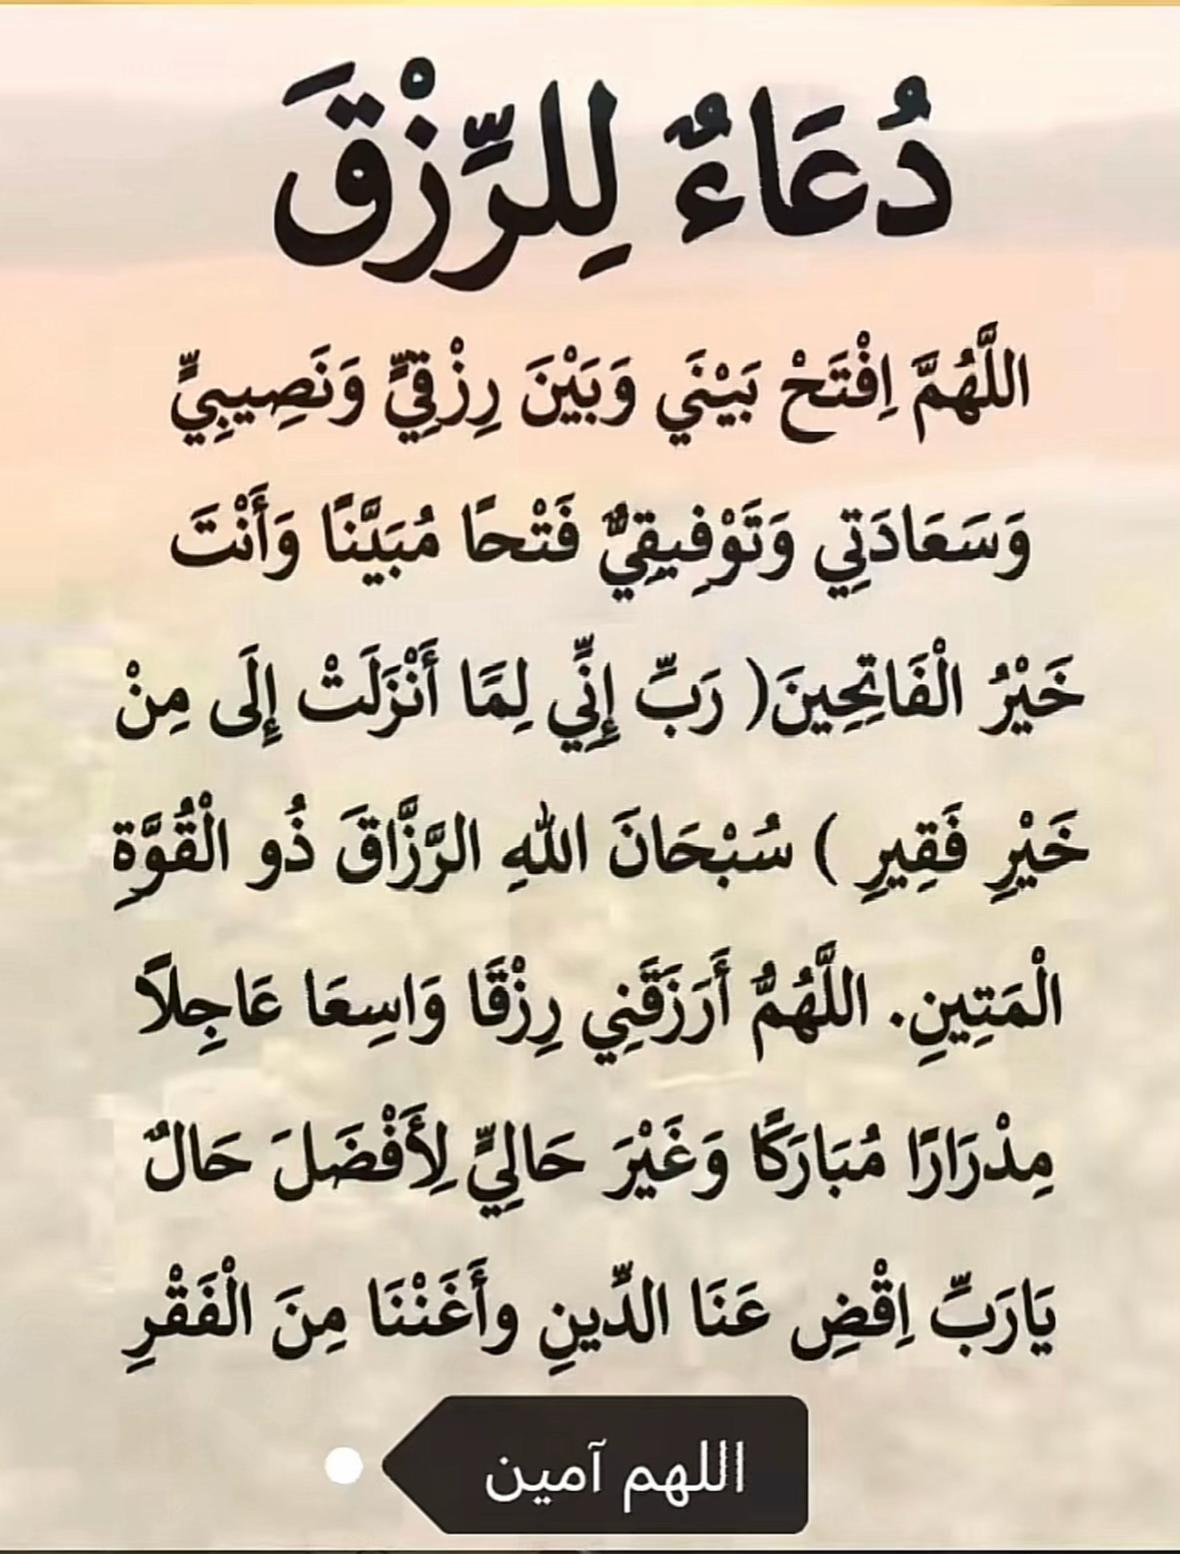 دُعَاءٌ لِلرِّزْقَ
اللَّهُمَّ اِفْتَحْ بَيْنَي وَبَيْنَ رِزْقِيٍّ وَنَصِيبِيٍّ
وَسَعَادَتِي وَتَوْفِيقِيٌّ فَتْحًا مُبَيَّنًا وَأَنْتَ
خَيْرُ الْفَاتِحِينَ( رَبِّ إِنِّي لِمًا أَنْزَلَتْ إِلَى مِنْ
خَيْرِ فَقِيرِ ) سُبْحَانَ اللهِ الرَّزَّاقَ ذُو الْقُوَّةِ
الْمَتِينِ. اللَّهُمُّ أَرَزَقَنِي رِزْقًا وَاسِعَا عَاجِلاً
مِدْرَارًا مُبَارَكًا وَغَيْرَ حَالِيٍّ لِأَفْضَلَ حَالٌ
يَارَبِّ اِقْضِ عَنَا الدِّينِ وأَغَنْنَا مِنَ الْفَقْرِ
اللهم آمين